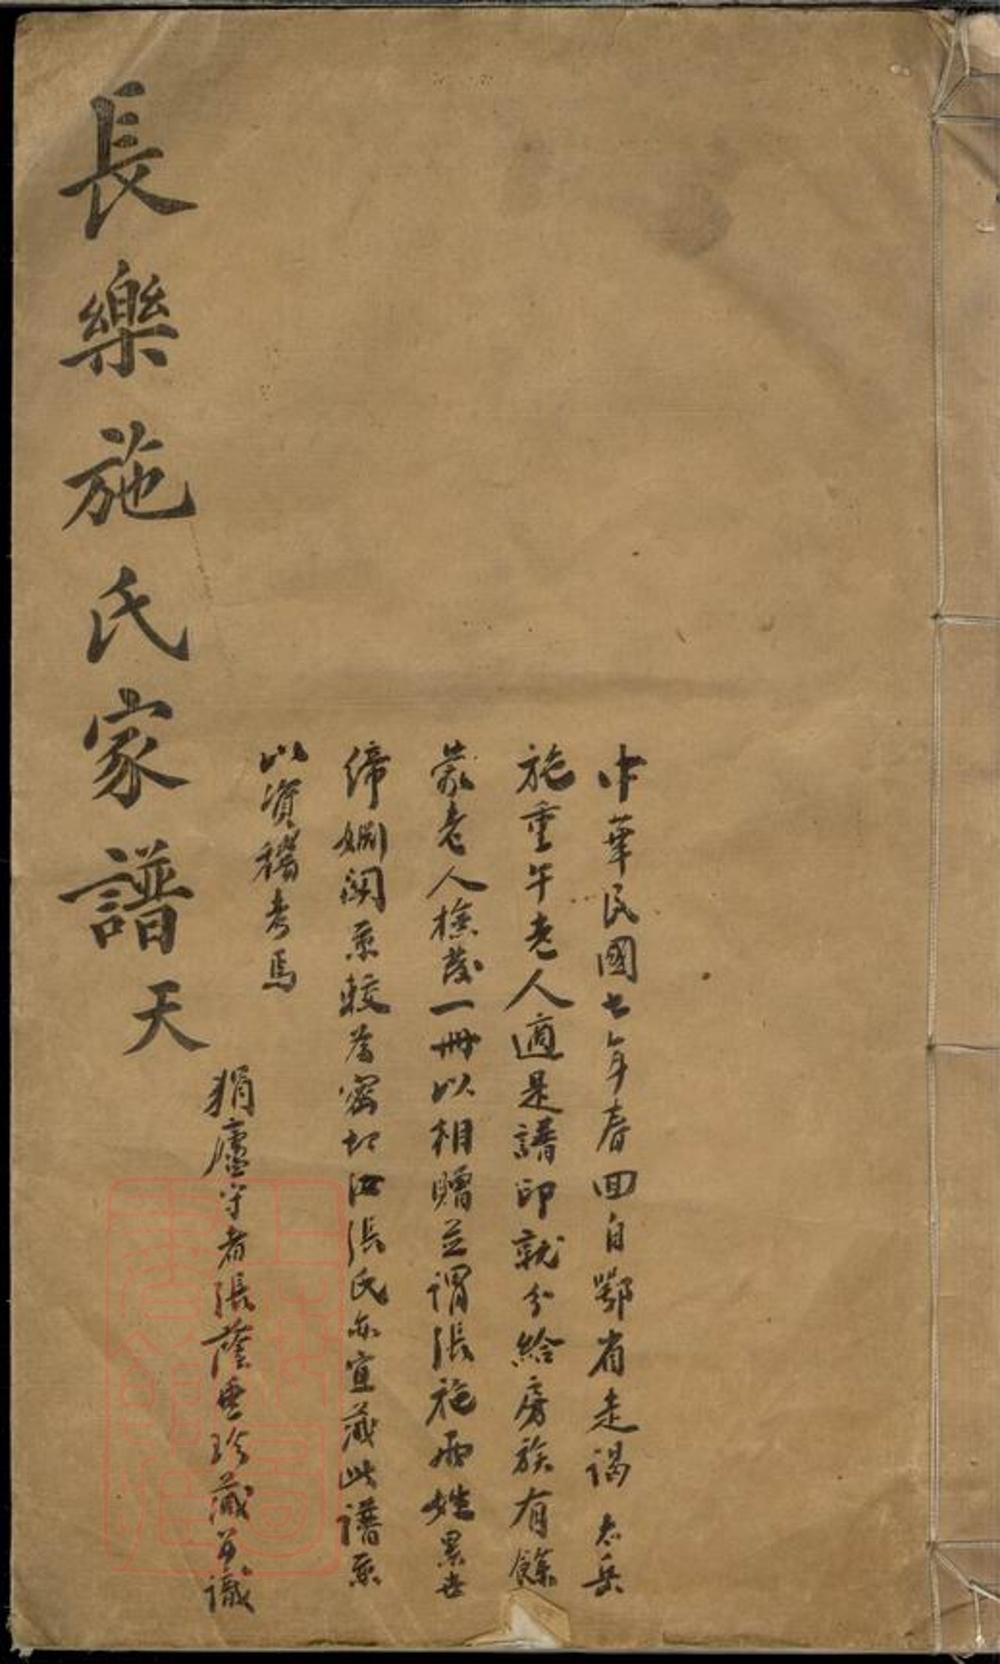 中華民國七年春回自鄂省走謁太岳
施重午老人適是譜印就分給房族有餘
蒙老人撿發一冊以相贈並謂張施兩姓累世
締姻關系較為密切汝張氏亦宜藏此譜系
以資稽考焉
狷廬守者張蔭 珍藏並識
長樂施氏家譜天